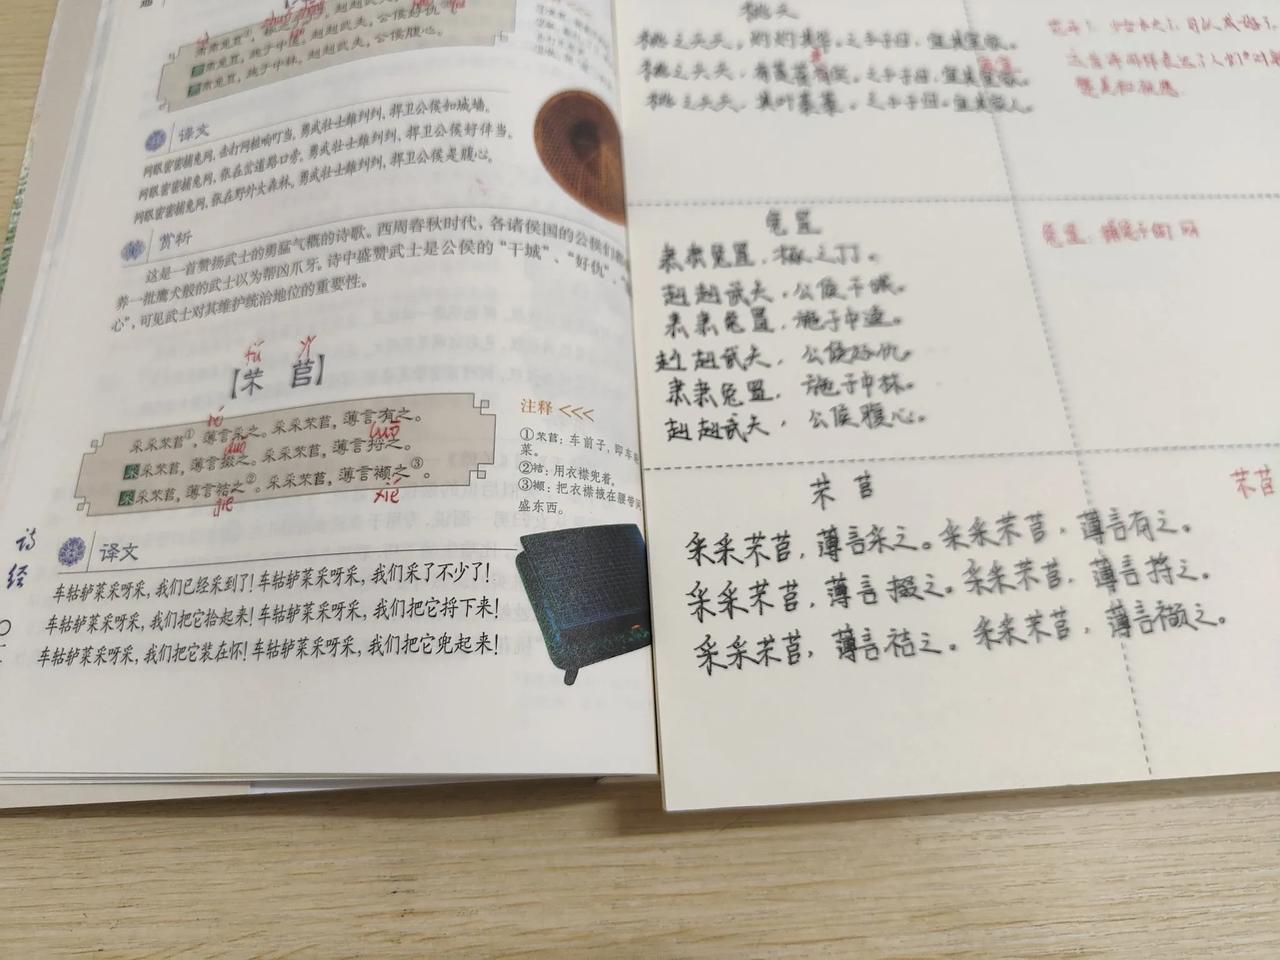 肃肃兔罝，施于中逵。赳赳武夫，公侯好仇。
肃肃兔罝，施于中林。赳赳武夫，公侯腹心。
译文
网眼密密捕兔网，击打网桩响叮当。勇武壮士雄纠纠，捍卫公侯和城墙。
网眼密密捕兔网，张在岔道路口旁。勇武壮士雄纠纠，捍卫公侯好伴当。
网眼密密捕兔网，张在野外大森林。勇武壮士雄纠纠，捍卫公侯是腹心。
赏析
这是一首赞扬武士的勇猛气概的诗歌。西周春秋时代，各诸侯国的公侯们都
养一批鹰犬般的武士以为帮凶爪牙。诗中盛赞武士是公侯的“干城”、“好仇”、
心”，可见武士对其维护统治地位的重要性。
fú yǐ
【芣 苢】
采采芣苢①，薄言采之。采采芣苢，薄言有之。
duō luō
采采芣苢，薄言掇之。采采芣苢，薄言捋之。
采采芣苢，薄言袺之②。采采芣苢，薄言襭之③。
jié xié
注释 <<<
①芣苢：车前子，即车
菜。
②袺：用衣襟兜着。
③襭：把衣襟掖在腰带间
盛东西。
译文
车轱轳菜采呀采，我们已经采到了！车轱轳菜采呀采，我们采了不少了！
车轱轳菜采呀采，我们把它拾起来！车轱轳菜采呀采，我们把它捋下来！
车轱轳菜采呀采，我们把它装在怀！车轱轳菜采呀采，我们把它兜起来！
诗经
桃夭
桃之夭夭，灼灼其华。之子于归，宜其室家。
桃之夭夭，有蕡有实。之子于归，宜其家室。
桃之夭夭，其叶蓁蓁。之子于归，宜其家人。
这首诗同样表达了人们对
赞美和祝愿
兔罝
肃肃兔罝，椓之丁丁。
赳赳武夫，公侯干城。
肃肃兔罝，施于中逵。
赳赳武夫，公侯好仇。
肃肃兔罝，施于中林。
赳赳武夫，公侯腹心。
兔罝：捕兔子的网
芣苢
采采芣苢，薄言采之。采采芣苢，薄言有之。
采采芣苢，薄言掇之。采采芣苢，薄言捋之。
采采芣苢，薄言袺之。采采芣苢，薄言襭之。
芣苢